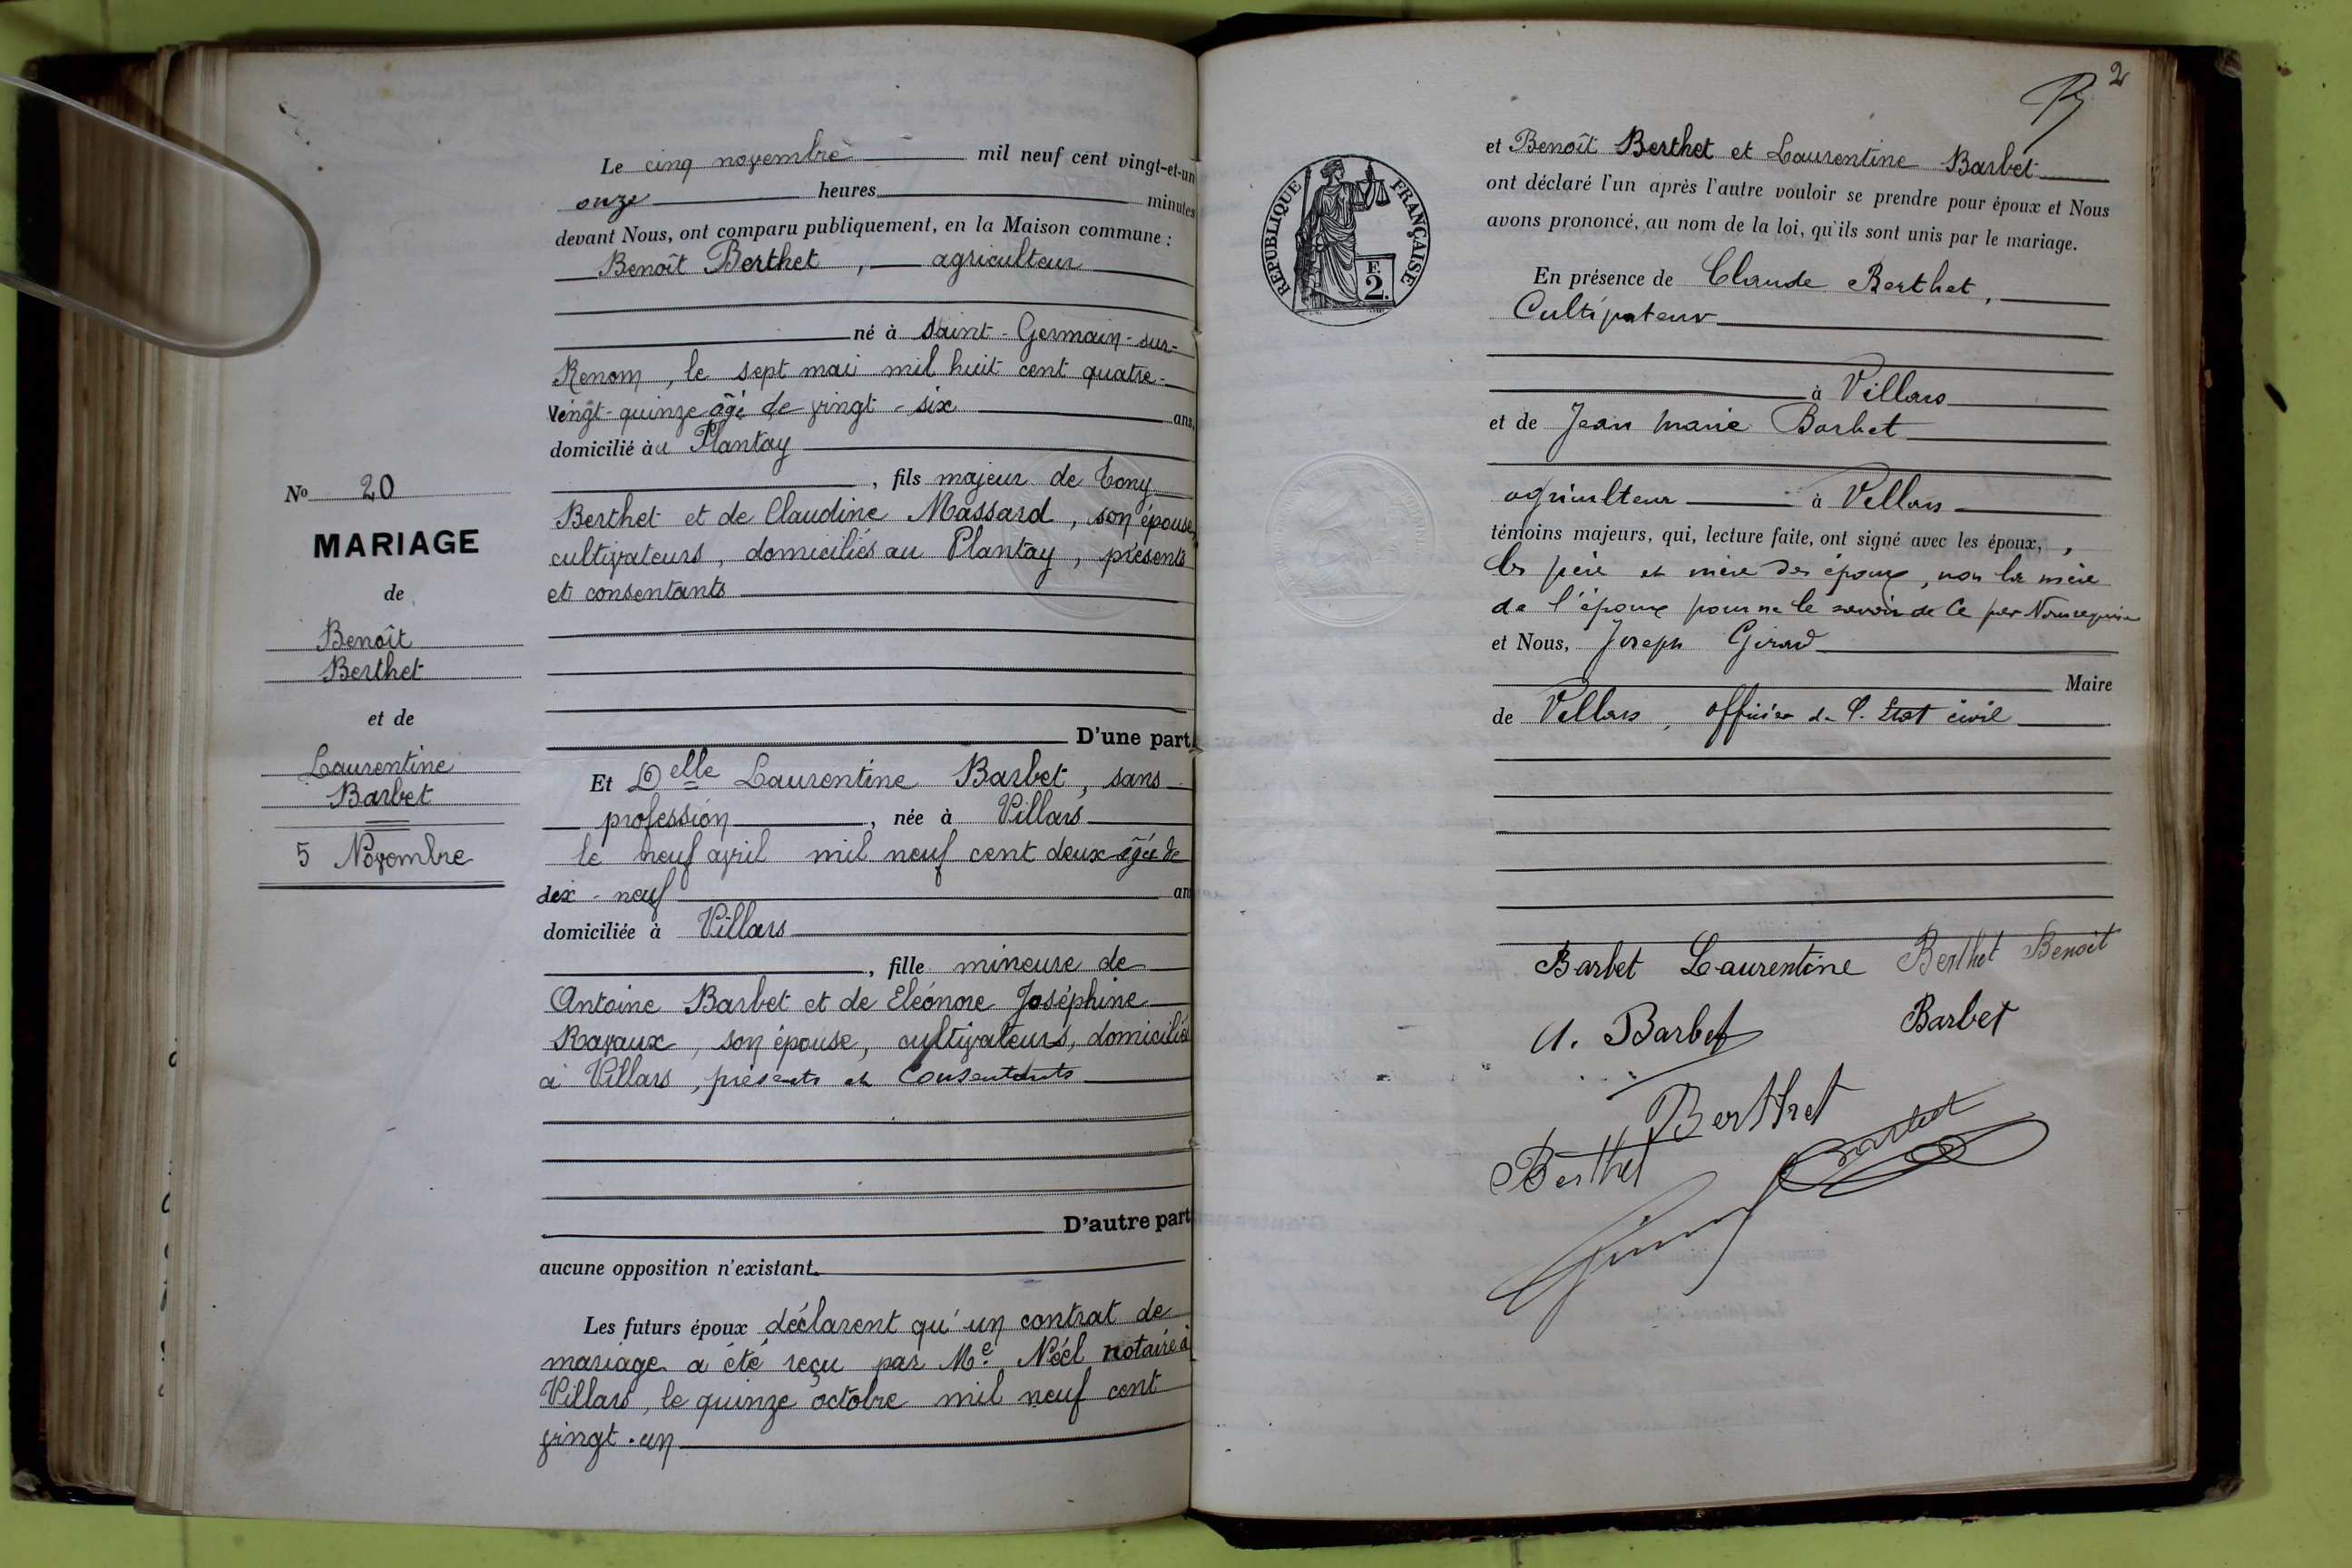 Le cinq novembre mil neuf cent vingt-et-un
onze heures minutes
devant Nous, ont comparu publiquement, en la Maison commune :
Benoît Berthet, agriculteur
né à Saint-Germain-sur-
Renom, le sept mai mil huit cent quatre-
vingt-quinze âgé de vingt-six ans,
domicilié au Plantay
, fils majeur de Tony
Berthet et de Claudine Massard, son épouse,
cultivateurs, domiciliés au Plantay, présents
et consentants
No 20
MARIAGE
de
Benoît
Berthet
et de
Laurentine
Barbet
5 Novembre
D'une part
Et Delle Laurentine Barbet, sans
profession, née à Villars
le neuf avril mil neuf cent deux âgée de
dix-neuf an
domiciliée à Villars
, fille mineure de
Antoine Barbet et de Eléonore Joséphine
Ravaux, son épouse, cultivateurs, domiciliés
à Villars, présents et consentants
D'autre part
aucune opposition n'existant.
Les futurs époux déclarent qu'un contrat de
mariage a été reçu par Me Noël notaire à
Villars, le quinze octobre mil neuf cent
vingt-un
2
RÉPUBLIQUE FRANÇAISE
F.
2.
et Benoît Berthet et Laurentine Barbet
ont déclaré l'un après l'autre vouloir se prendre pour époux et Nous
avons prononcé, au nom de la loi, qu'ils sont unis par le mariage.
En présence de Claude Berthet,
Cultivateur
à Villars
et de Jean Marie Barbet
agriculteur à Villars
témoins majeurs, qui, lecture faite, ont signé avec les époux, ,
les père et mère des époux, non la mère
de l'époux pour ne le savoir de ce par Nous requise
et Nous, Joseph Girard
Maire
de Villars, officier de l'Etat civil
Barbet Laurentine Berthet Benoit
A. Barbet Barbet
Berthet
Berthet Barbet